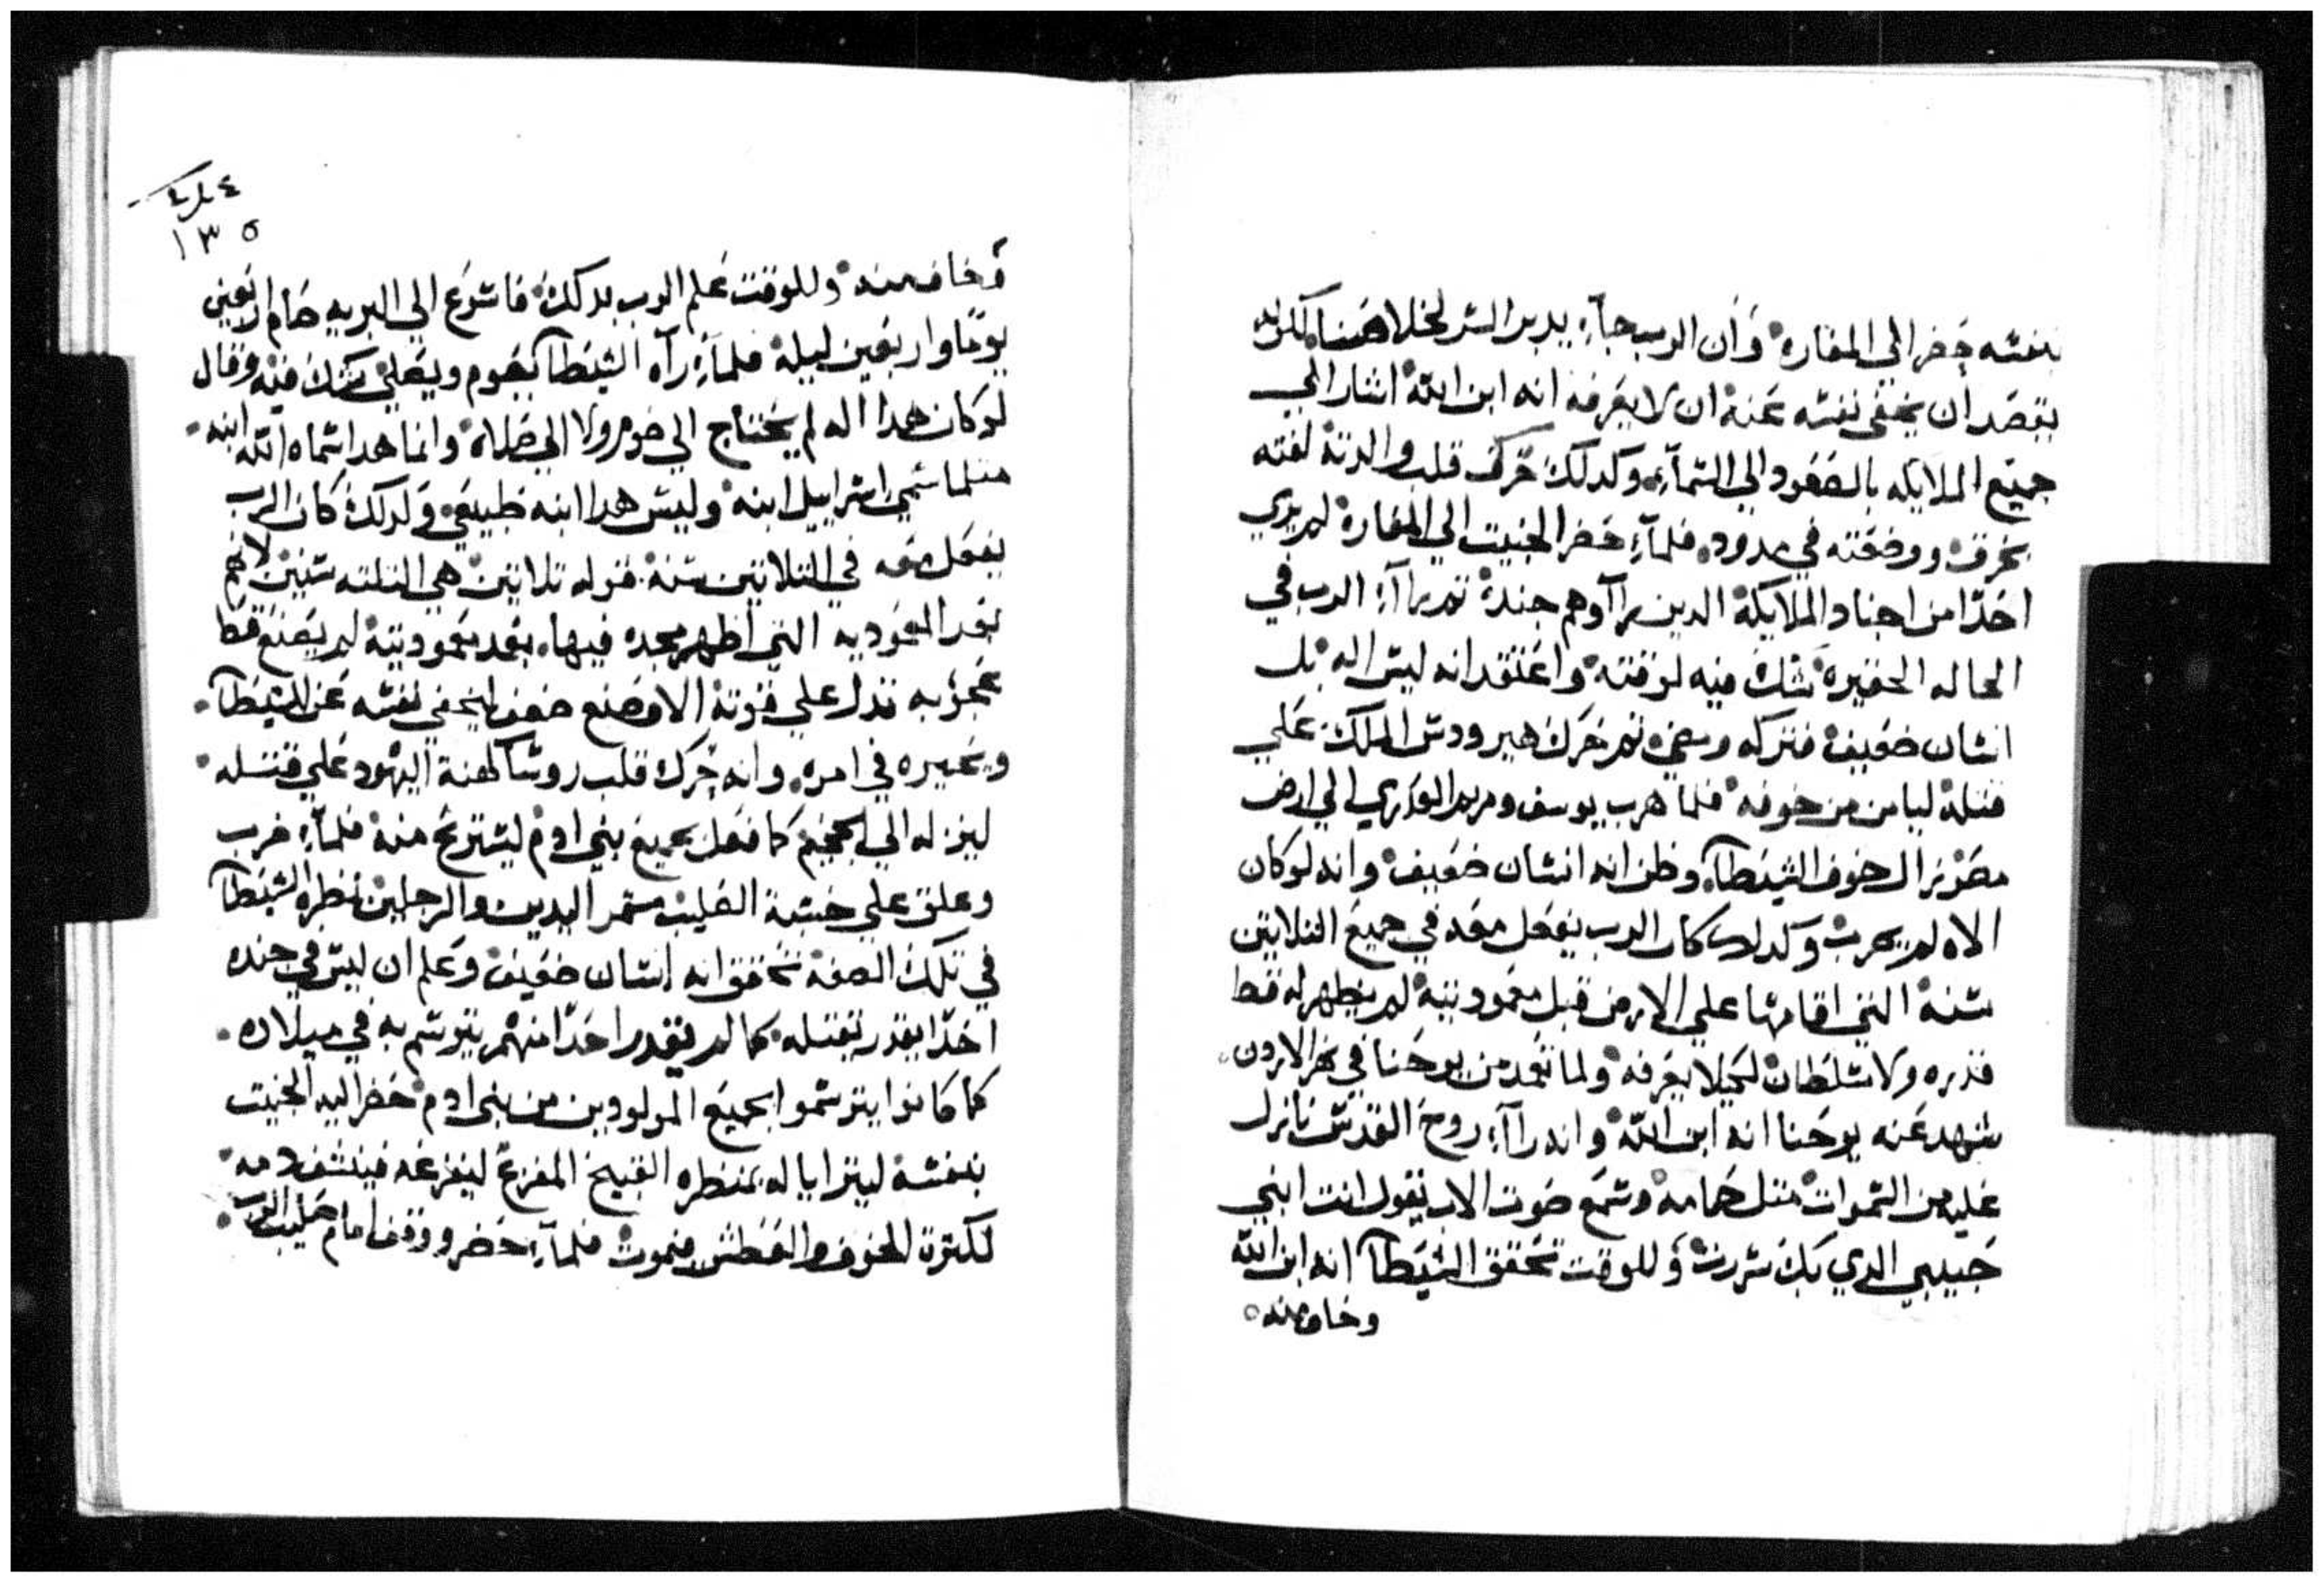 بنفسه حضر الي المغاره وان الرب جآء يدبر السر لخلاصنا لكونه
بقصد ان يخفي نفسه عنه ان لا يعرفه انه ابن الله اشار الي
جميع الملايكه بالصعود الي السمآء وكدلك حرك قلب والدته لفته
بخرق ووضعته في مدود فلمآء حضر الخبيت الي المغارة لم يري
احدًا من اجناد الملايكة الدين راآوهم جنده تم راآء الرب في
الحاله الحقيرة شك فيه لوقته واعتقد انه ليس اله بل
انسان ضعيف فتركه ومضي تم حرك هيرودس الملك علي
قتلة ليامن من خوفه فلما هرب يوسف ومريم العدري الي ارض
مصر زال خوف الشيطآ وظن انه انسان ضعيف وانه لو كان
الاه لم يهرب وكدلك كان الرب يفعل معه في جميع التلاتين
سنة التي اقامها علي الارض قبل معموديته لم يظهر له قط
قدره ولا سلطان لكيلا يعرفه ولما تعمد من يوحنا في نهر الاردن
شهد عنه يوحنا انه ابن الله وانه راآء روح القدس نازل
عليه من السموات متل حمامه وسمع صوت الاب يقول انت ابني
حبيبي الدي بك سررت وللوقت تحقق الشيطآ انه ابن الله
وخاف منه
١٣٥
وخاف منه وللوقت علم الرب بدلك فاسرع الي البريه صام اربعين
يومًا واربعين ليلة فلمآء رآه الشيطآ يصوم ويصلي شك فيه وقال
لو كان هدا اله لم يحتاج الي صوم ولا الي صلاة وانما هدا سماه الله ابنه
متلما سمي اسراييل ابنه وليس هدا ابنه طبيعي وكدلك كان الرب
يفعل معه في التلاتين سنة قوله تلاتين هي التلته سنين لانهم
بعد المعموديه التي اظهر مجده فيها بعد معموديته لم يصنع قط
عجوبه تدل علي قوته الا وصنع ضعف ليخفي نفسه عن الشيطآ
ويحيره في امره وانه حرك قلب روسآ كهنة اليهود علي قتله
لينزله الي الجحيم كما فعل بجميع بني ادم ليستريح منه فلمآء ضرب
وعلق علي خشبة الصليب مسمر اليدين والرجلين نظره الشيطآ
في تلك الصفه تحقق انه انسان ضعيف وعلم ان ليس في جنده
احدًا يقدر بقتله كما لم يقدر احدًا منهم يتوسم به في ميلاده
كما كانوا يتوسموا بجميع المولودين من بني ادم حضر اليه الخبيت
بنفسه ليترايا له بمنظره القبيح المفزع ليفزعه فينشف دمه
لكترة الخوف والعطش فيموت فلمآء حضر ووقف امام صليب الرب